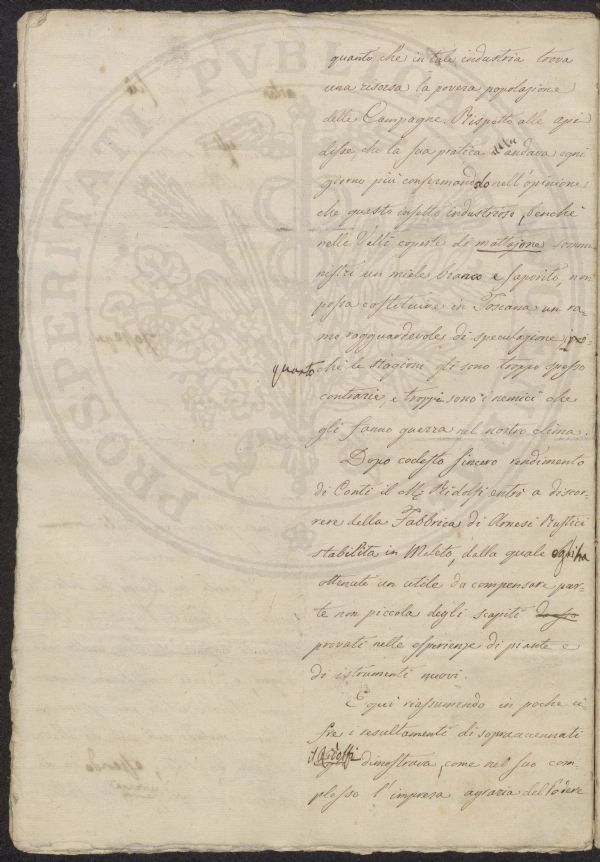 quanto che in tale industria trova
una risorsa la povera popolazione
delle Campagne. Rispetto alle api
disse, che la sua pratica andava ogni
giorno più confermandolo nell'opinione
che questo insetto industrioso, benchè
nelle Valli coperte di mattajone sommi=
nistri un miele bianco e saporito, non
possa costituire in Toscana un ra=
mo ragguardevole di speculazione in
quanto che le stagioni gli sono troppo spesso
contrarie, e troppi sono i nemici che
gli fanno guerra nel nostro clima.
Dopo codesto sincero rendimento
di Conti il Mse Ridolfi entrò a discor=
rere della Fabbrica di Arnesi Rustici
stabilita in Meleto, dalla quale egli ha
ottenuto un utile da compensare par=
te non piccola degli scapiti
provati nelle esperienze di piante e
di istrumenti nuovi.
E qui riassumendo in poche ci=
fre i resultamenti di sopraaccennati
il Ridolfi dimostrava, come nel suo com=
plesso l'impresa agraria del Podere
PROSPERITATI PVBLICAE